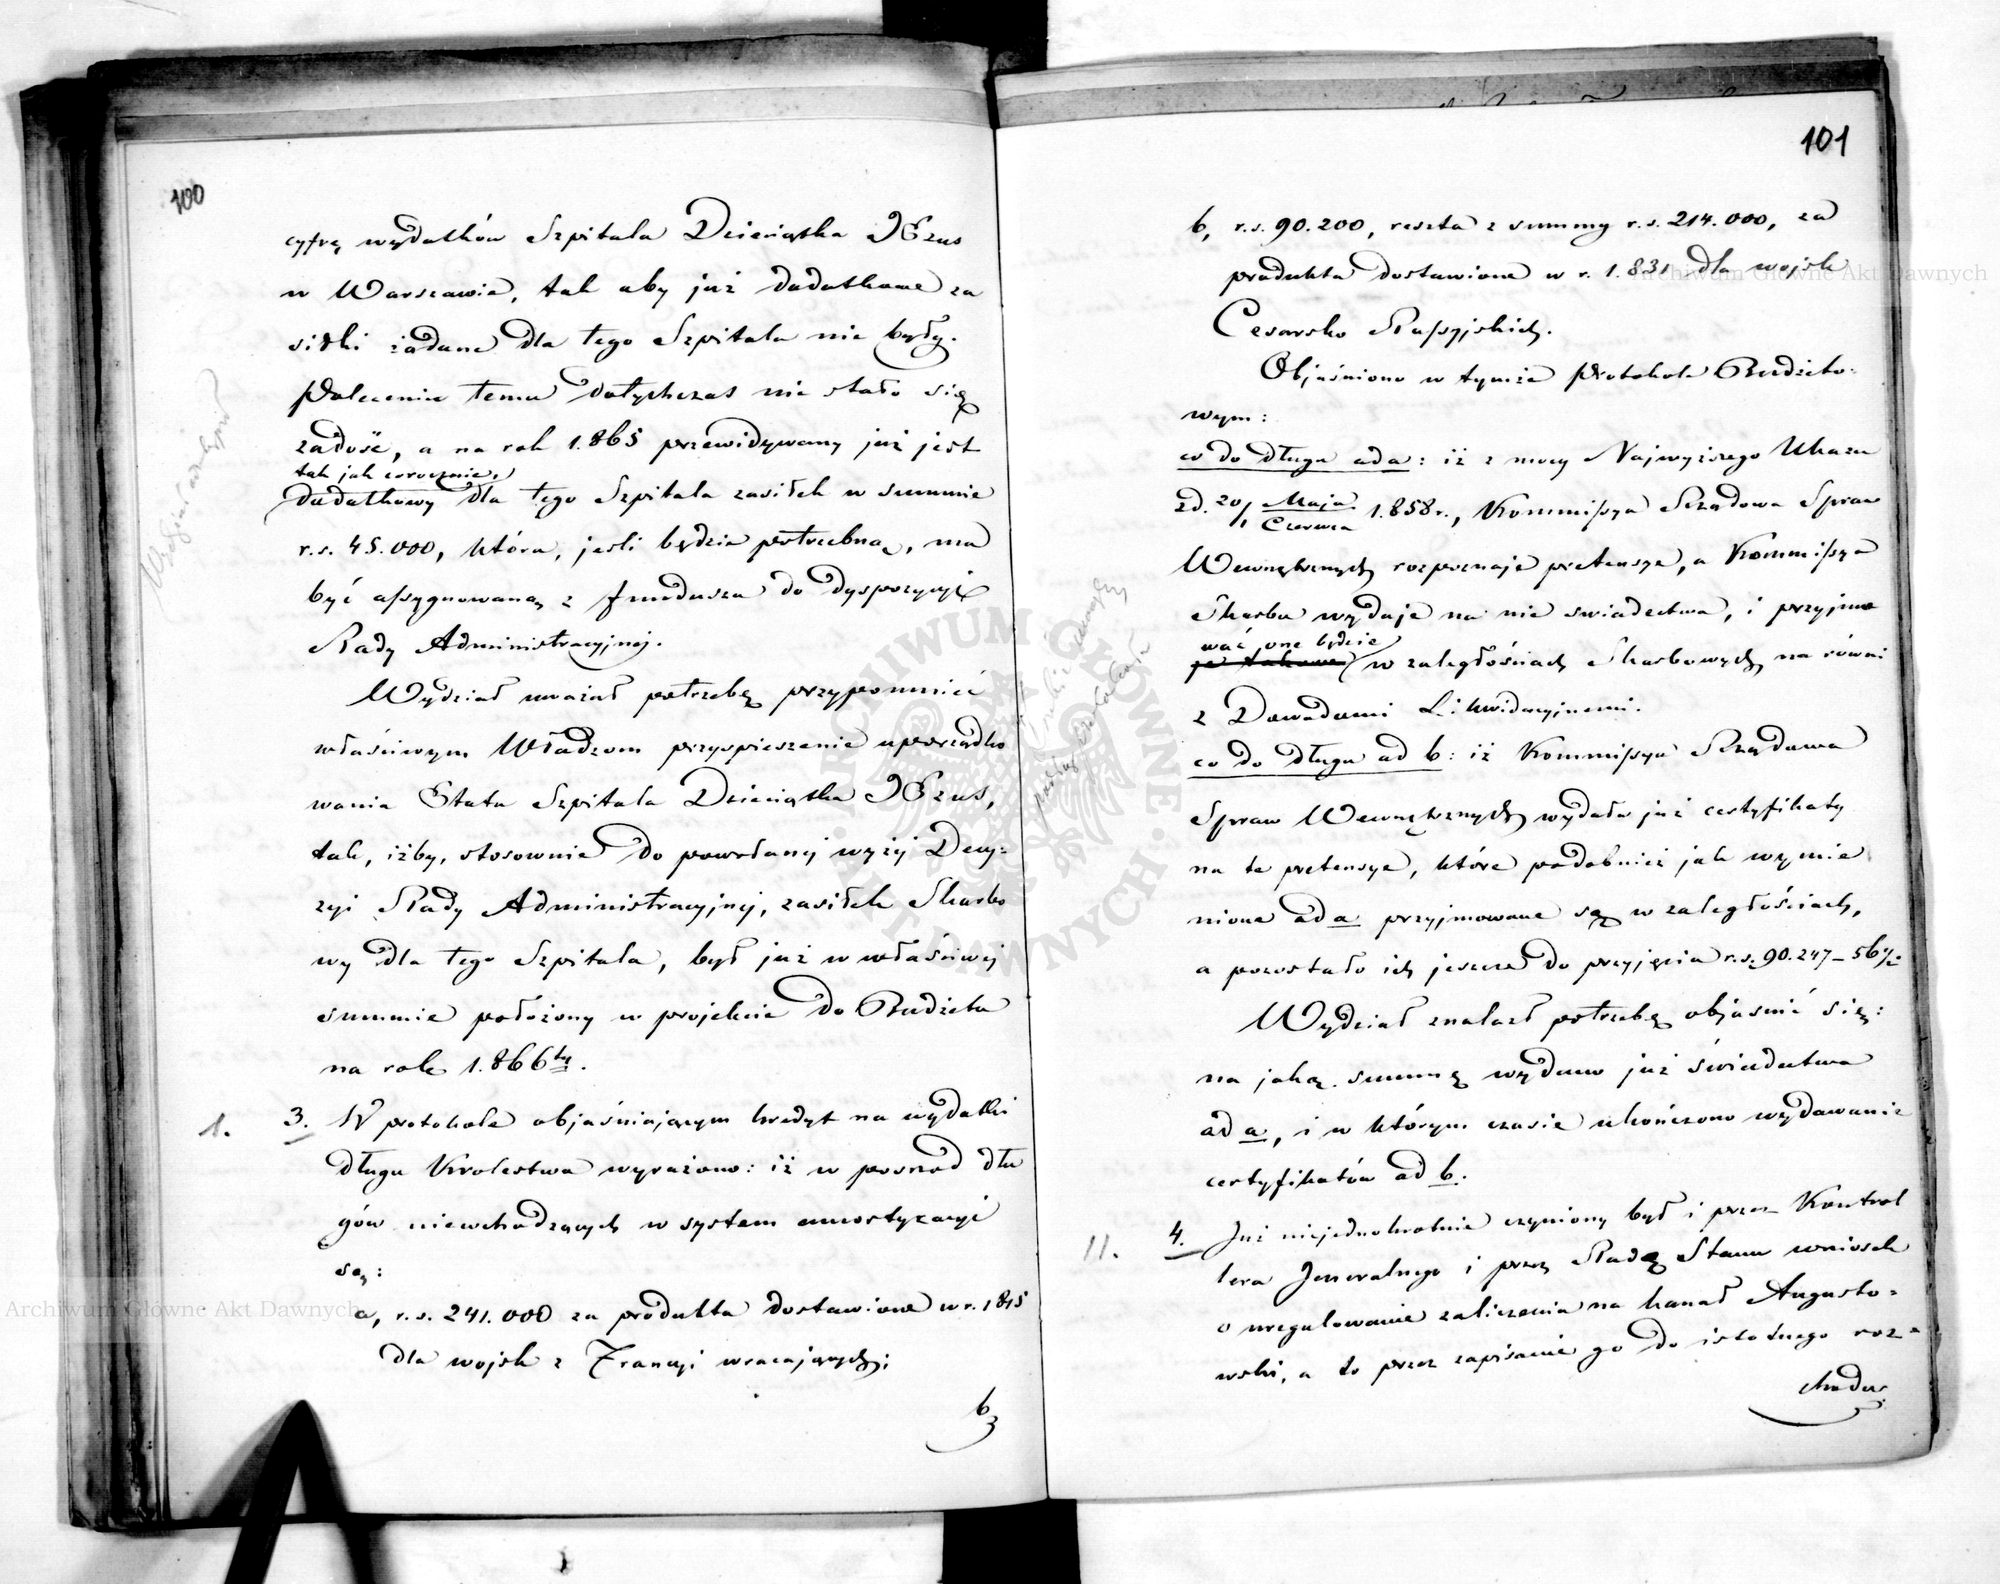 100
cyfrę wydatków Szpitala Dzieciątka JEzus
w Warszawie, tak aby już dodatkowe za
siłki żądane dla tego Szpitala nie były.
Poleceniu temu dotychczas nie stało się
zadość, a na rok 1.865 przewidywany już jest
tak jak corocznie,
dodatkowy dla tego Szpitala zasiłek w summie
r.s. 45.000, która, jeśli będzie potrzebną, ma
być assygnowaną z funduszu do dyspozycyi
Rady Administracyjnej.
Wydział uważał potrzebę przypomnieć
właściwym Władzom przyspieszenie uporządko
wania Etatu Szpitala Dzieciątka JEzus,
tak, iżby, stosownie do powołanej wyżej Decy=
zyi Rady Administracyjnej, zasiłek Skarbo
wy dla tego Szpitala, był już w właściwej
summie położony w projekcie do Budżetu
na rok 1.866ty.
1. 3. W protokole objaśniającym kredyt na wydatki
długu Krolestwa wyrażono: iż w posrod dłu
gów niewchodzących w system amortyzacyi
są:
a, r.s. 241.000 za produkta dostawione w r. 1815
dla wojsk z Francyi wracających;
b,
101
b, r.s. 90.200, reszta z summy r.s. 214.000, za
produkta dostawione w r. 1.831 dla wojsk
Cesarsko Rossyjskich.
Objaśniono w tymże Protokole Budżeto=
wym:
co do długu ad a: iż z mocy Najwyższego Ukazu
zd. 20/1 Maja/Czerwca 1.858 r., Kommissya Rządowa Spraw
Wewnętrznych rozpoznaje pretensye, a Kommissya
Skarbu wydaje na nie swiadectwa, i przyjmo
wać one będzie
w zaległościach Skarbowych, na równi
z Dowodami Likwidacyjnemi.
co do długu ad b: iż Kommissya Rządowa
Spraw Wewnętrznych wydała już certyfikaty
na te pretensye, które podobnież jak wymie
nione ad a przyjmowane są w zaległościach,
a pozostało ich jeszcze do przyjęcia r.s. 90.247–56½
Wydział znalazł potrzebę objasnić się:
na jaką summę wydano już świadectwa
ad a, i w którym czasie ukończono wydawanie
certyfikatów ad b.
11. 4. Już niejednokrotnie czyniony był i przez Kontrol
lera Jeneralnego i przez Radę Stanu wniosek
o uregulowanie zaliczenia na kanał Augusto=
wski, a to przez zapisanie go do istotnego roz=
chodu.
Archiwum Główne Akt Dawnych
Archiwum Główne Akt Dawnych
ARCHIWUM GŁÓWNE AKT DAWNYCH